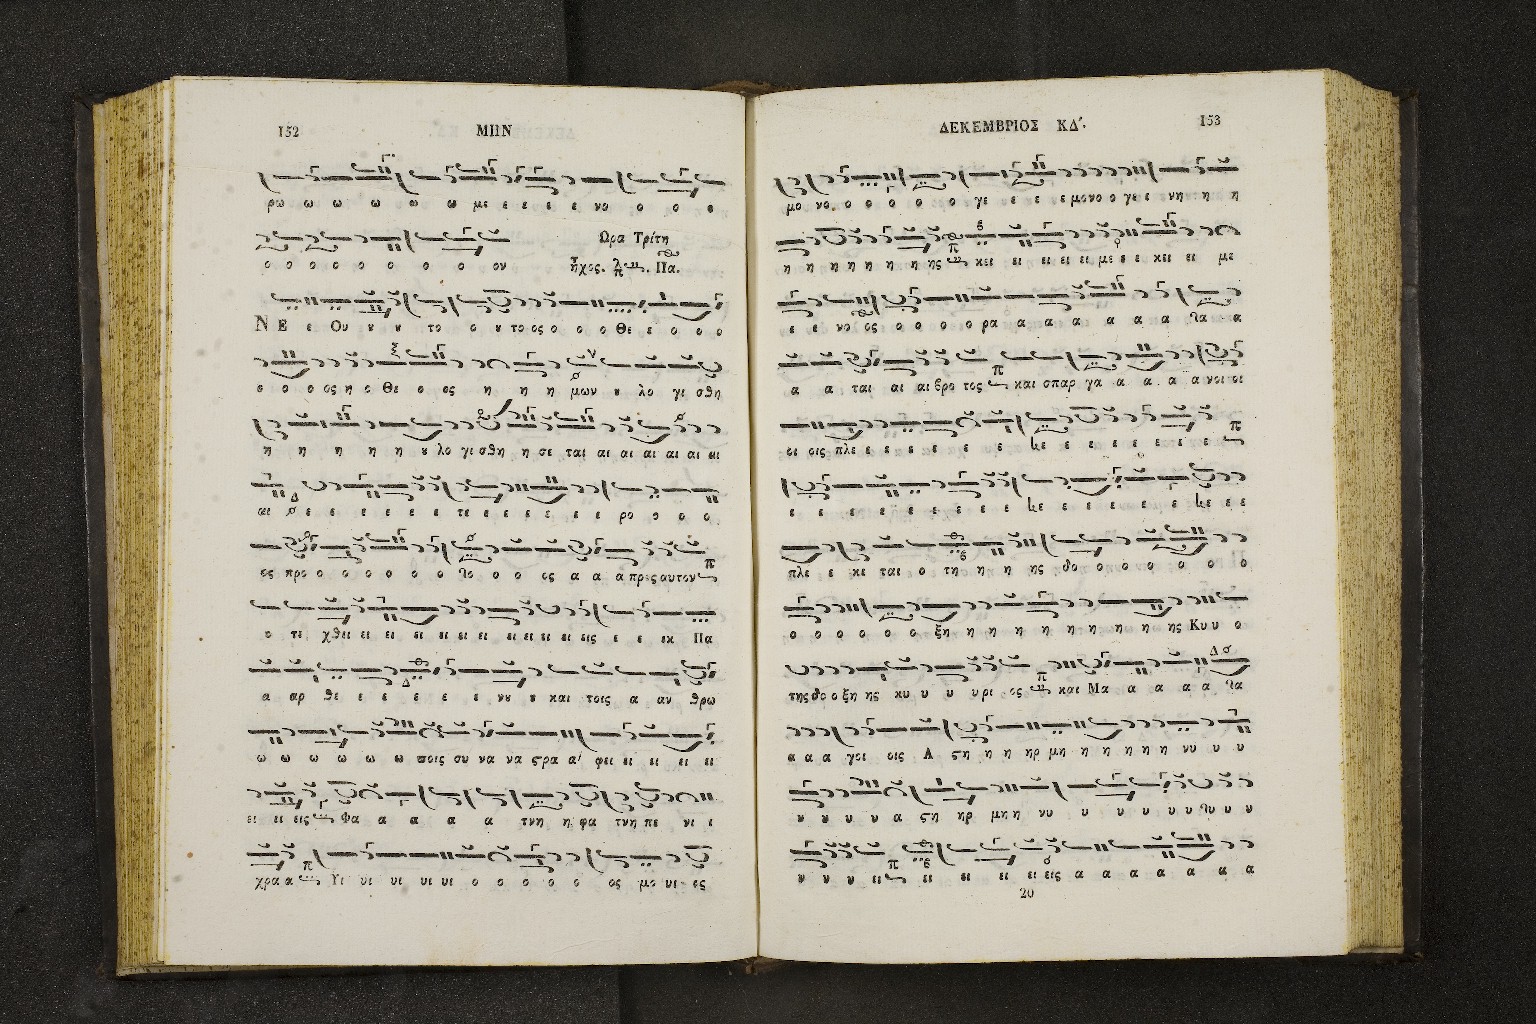 152 ΜΗΝ
ρω ω ω ω ω ω με ε ε ε ε νο ο ο ο
ο ο ο ο ο ο ο ο ο ον
Ωρα Τρίτη
ἦχος. Πα.
ΝΕ ε Ου υ υ υ το ο υ το ος ο ο ο Θε ε ο ο ο
ο ο ο ος η ο Θε ο ος η η η μων υ λο γι σθη
η η η η η υ λο γι σθη η σε ται αι αι αι αι αι αι
αι ε ε ε ε ε ε τε ε ε ε ε ε ε ρο ο ο ο
ος προ ο ο ο ο ο ο ο ο ο ος α α α προς αυτον
ο τι χθει ει ει ει ει ει ει ει ει ει ει εις ε ε εκ Πα
α αρ θε ε ε ε ε ε ε νου υ και τοις α αν θρω
ω ω ω ω ω ω ποις συ να να στρα α φει ει ει ει ει
ει ει εις Φα α α α α τνη η φα τνη πε νι ι
χρα α Υι υι υι υι υι ο ο ο ο ο ος μο νι ος
ΔΕΚΕΜΒΡΙΟΣ ΚΔ΄. 153
μο νο ο ο ο ο ο ο γε ε ε ε μονο ο γε ε νη η η
η η η η η η η ης κει ει ει ει ει με ε ε κει ει με
ε ε νο ος ο ο ο ο ρα α α α α α α α
α α ται αι αι βρο τος και σπαρ γα α α α α νοι οι
οι οις πλε ε ε ε ε ε ε ε ε ε ε ε ε ε
ε ε ε ε ε ε ε ε ε ε ε ε ε ε ε ε
πλε ε κε ται ο τη η η η ης δο ο ο ο ο ο ο ο
ο ο ο ο ο ο ξη η η η η η η η η η ης Κυ υ ο
της δο ο ξη ης κυ υ υ υρι ος και Μα α α α α
α α α γοι οις Α στη η η ηρ μη η η η η η νυ υ υ
υ υ υ υ α στη ηρ μη η νυ υ υ υ υ υ υ υ
υ υ υ ει ει ει ει ει εις α α α α α α α
20